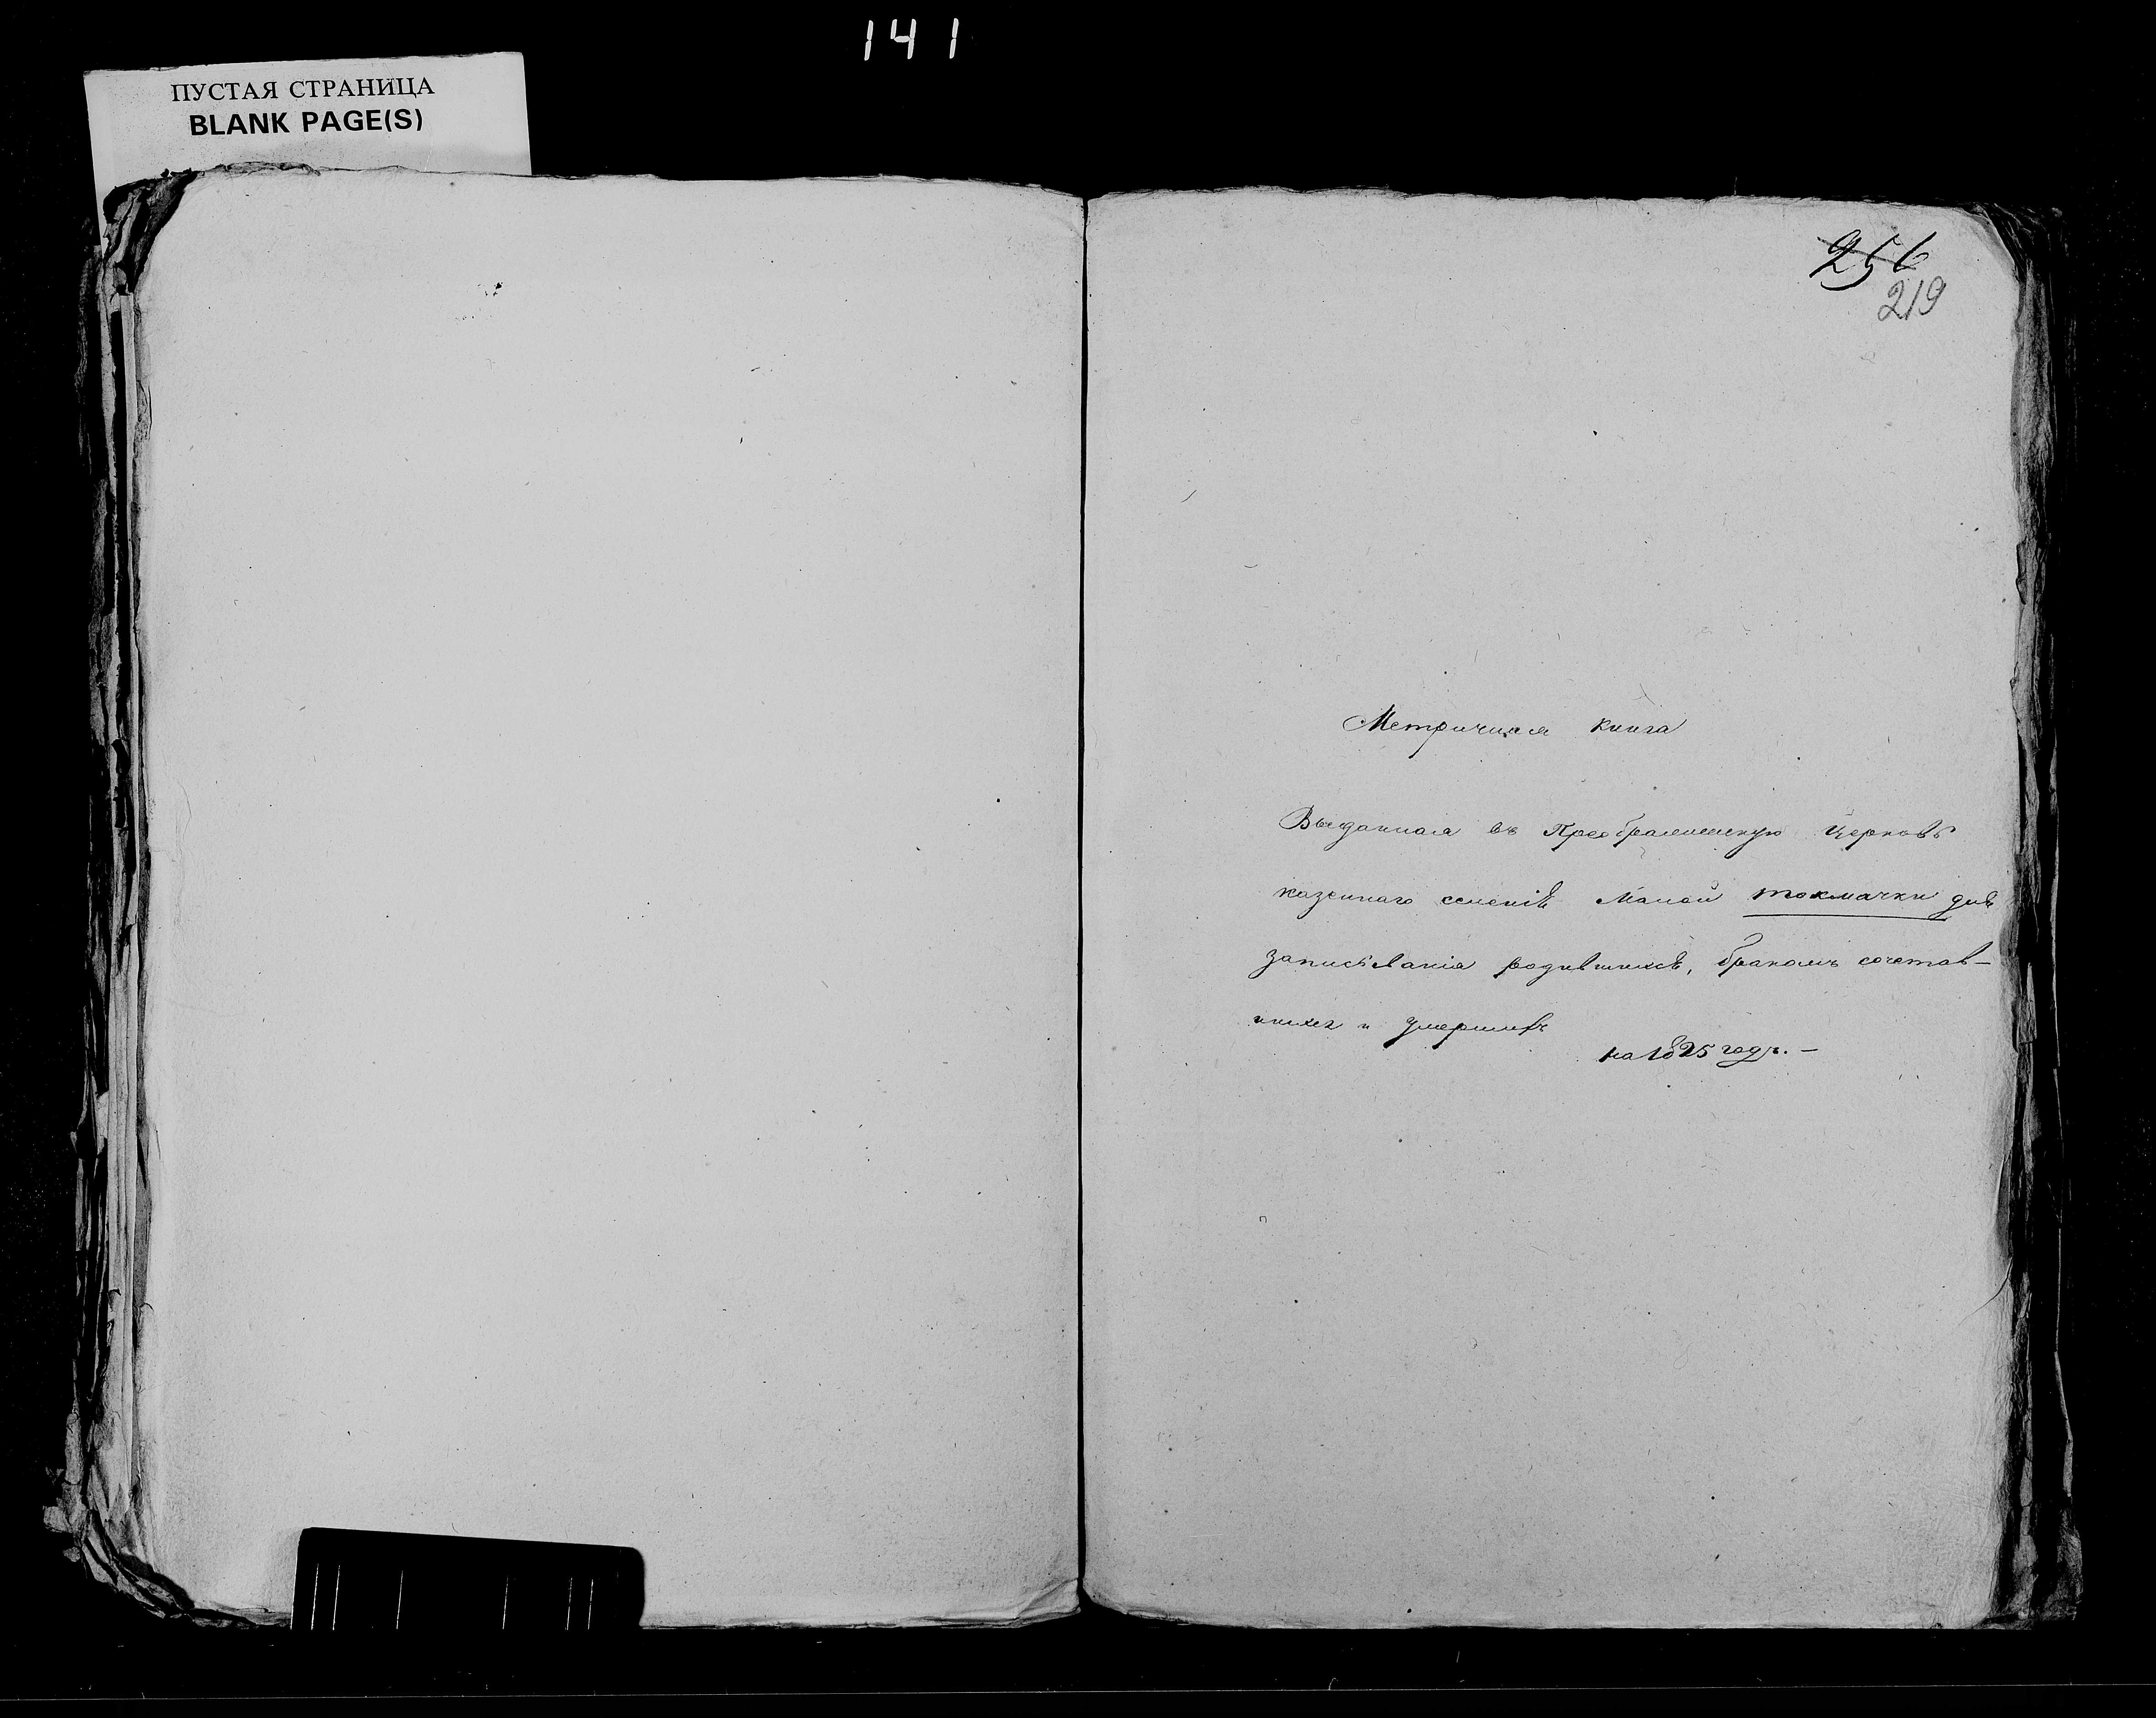 141
ПУСТАЯ СТРАНИЦА
BLANK PAGE(S)
256
219
Метричная книга
Выданная въ Преображенскую Церковь
казеннаго селенія Малой токмачки для
записыванія родившихся, бракомъ сочетав-
шихся и умершихъ
на 1825 годъ. —